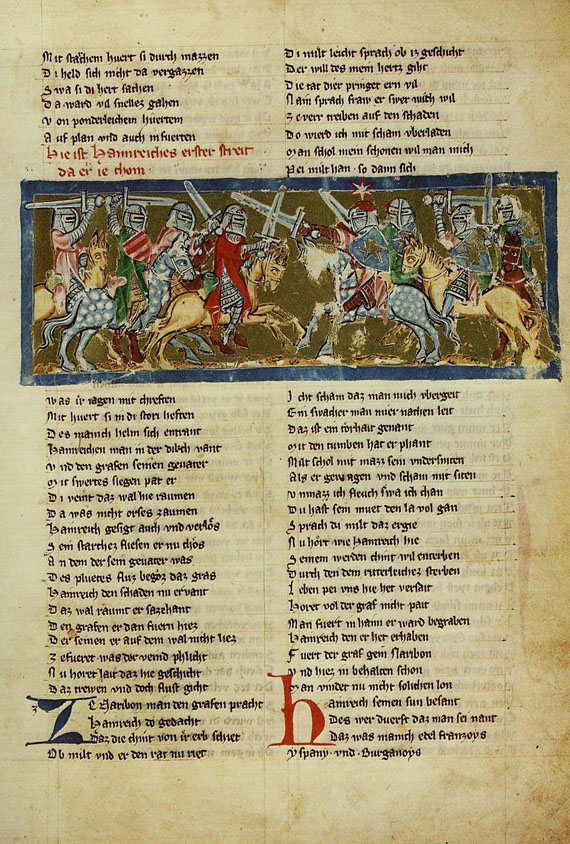 Mit starchem huert si durch mazzen
Di held sich nicht da vergazzen
Swa si di hert sachen
Da ward vil snelles gahen
Von ponderleichem huertem
Auf plan vnd auch in fuerten
Hie ist Haimreiches erster streit
da er ie chom
Di milt leicht sprach ob iz geschicht
Der will des mein hertz giht
Die tat dier pringet ern vil
Nain sprach fraw er swer mich wil
Ze verr treiben auf den schaden
Do wierd ich mit scham vberladen
Man schol mein schonen wil man mich
Pei milt han so dann sich
Was ir iagen mit chreften
Mit huert si in di stori heften
Des manich helm sich entrant
Haimreichen man in der dikch vant
Vnd den grafen seinen geuater
Mit swertes slegen pat er
Di veint daz wal hie raumen
Da was nicht orses zaumen
Haimreich gesigt auch vnd verlos
Sein starchez fliesen er nu chos
An dem der sein geuater was
Des pluetes fluz begoz daz gras
Haimreich den schaden nu ervant
Daz wal raumt er sazehant
Den grafen er dan fuern hiez
Der seinen er auf dem wal nicht liez
Ze fueret was der veind phlicht
Nu horet lait daz hie geschicht
Daz trewen vnd doch flust giht
Ze Naribon man den grafen pracht
Haimreich do gedacht
Daz die chint von ir erb schiet
Ob milt vnd er den rat nu riet
Icht scham daz man mich vbergeit
Ein swacher man nuer nachen leit
Daz ist ein torhait genant
Mit den tumben hat er phant
Milt schol mit mazz sein vndersniten
Als er gewegen vnd scham mit siten
Vnmazz ich fleuch swa ich chan
Du hast sein muet den la vol gan
Sprach di milt daz ergie
Nu hört wie Haimreich hie
Seinem werden chint wil enterben
Durch den dem ritterleichez sterben
Leben pei vns hie het versait
Horet vol der graf nicht pait
Man fuert in haim er ward begraben
Haimreich den er het erhaben
Fuert der graf gein Naribon
Vnd hiez in behalten schon
Man vindet nu nicht solichen lon
Haimreich seinen sun besant
Des wer duerft daz man sei nant
Daz was manich edel franzoys
Yspany vnd Burganoys